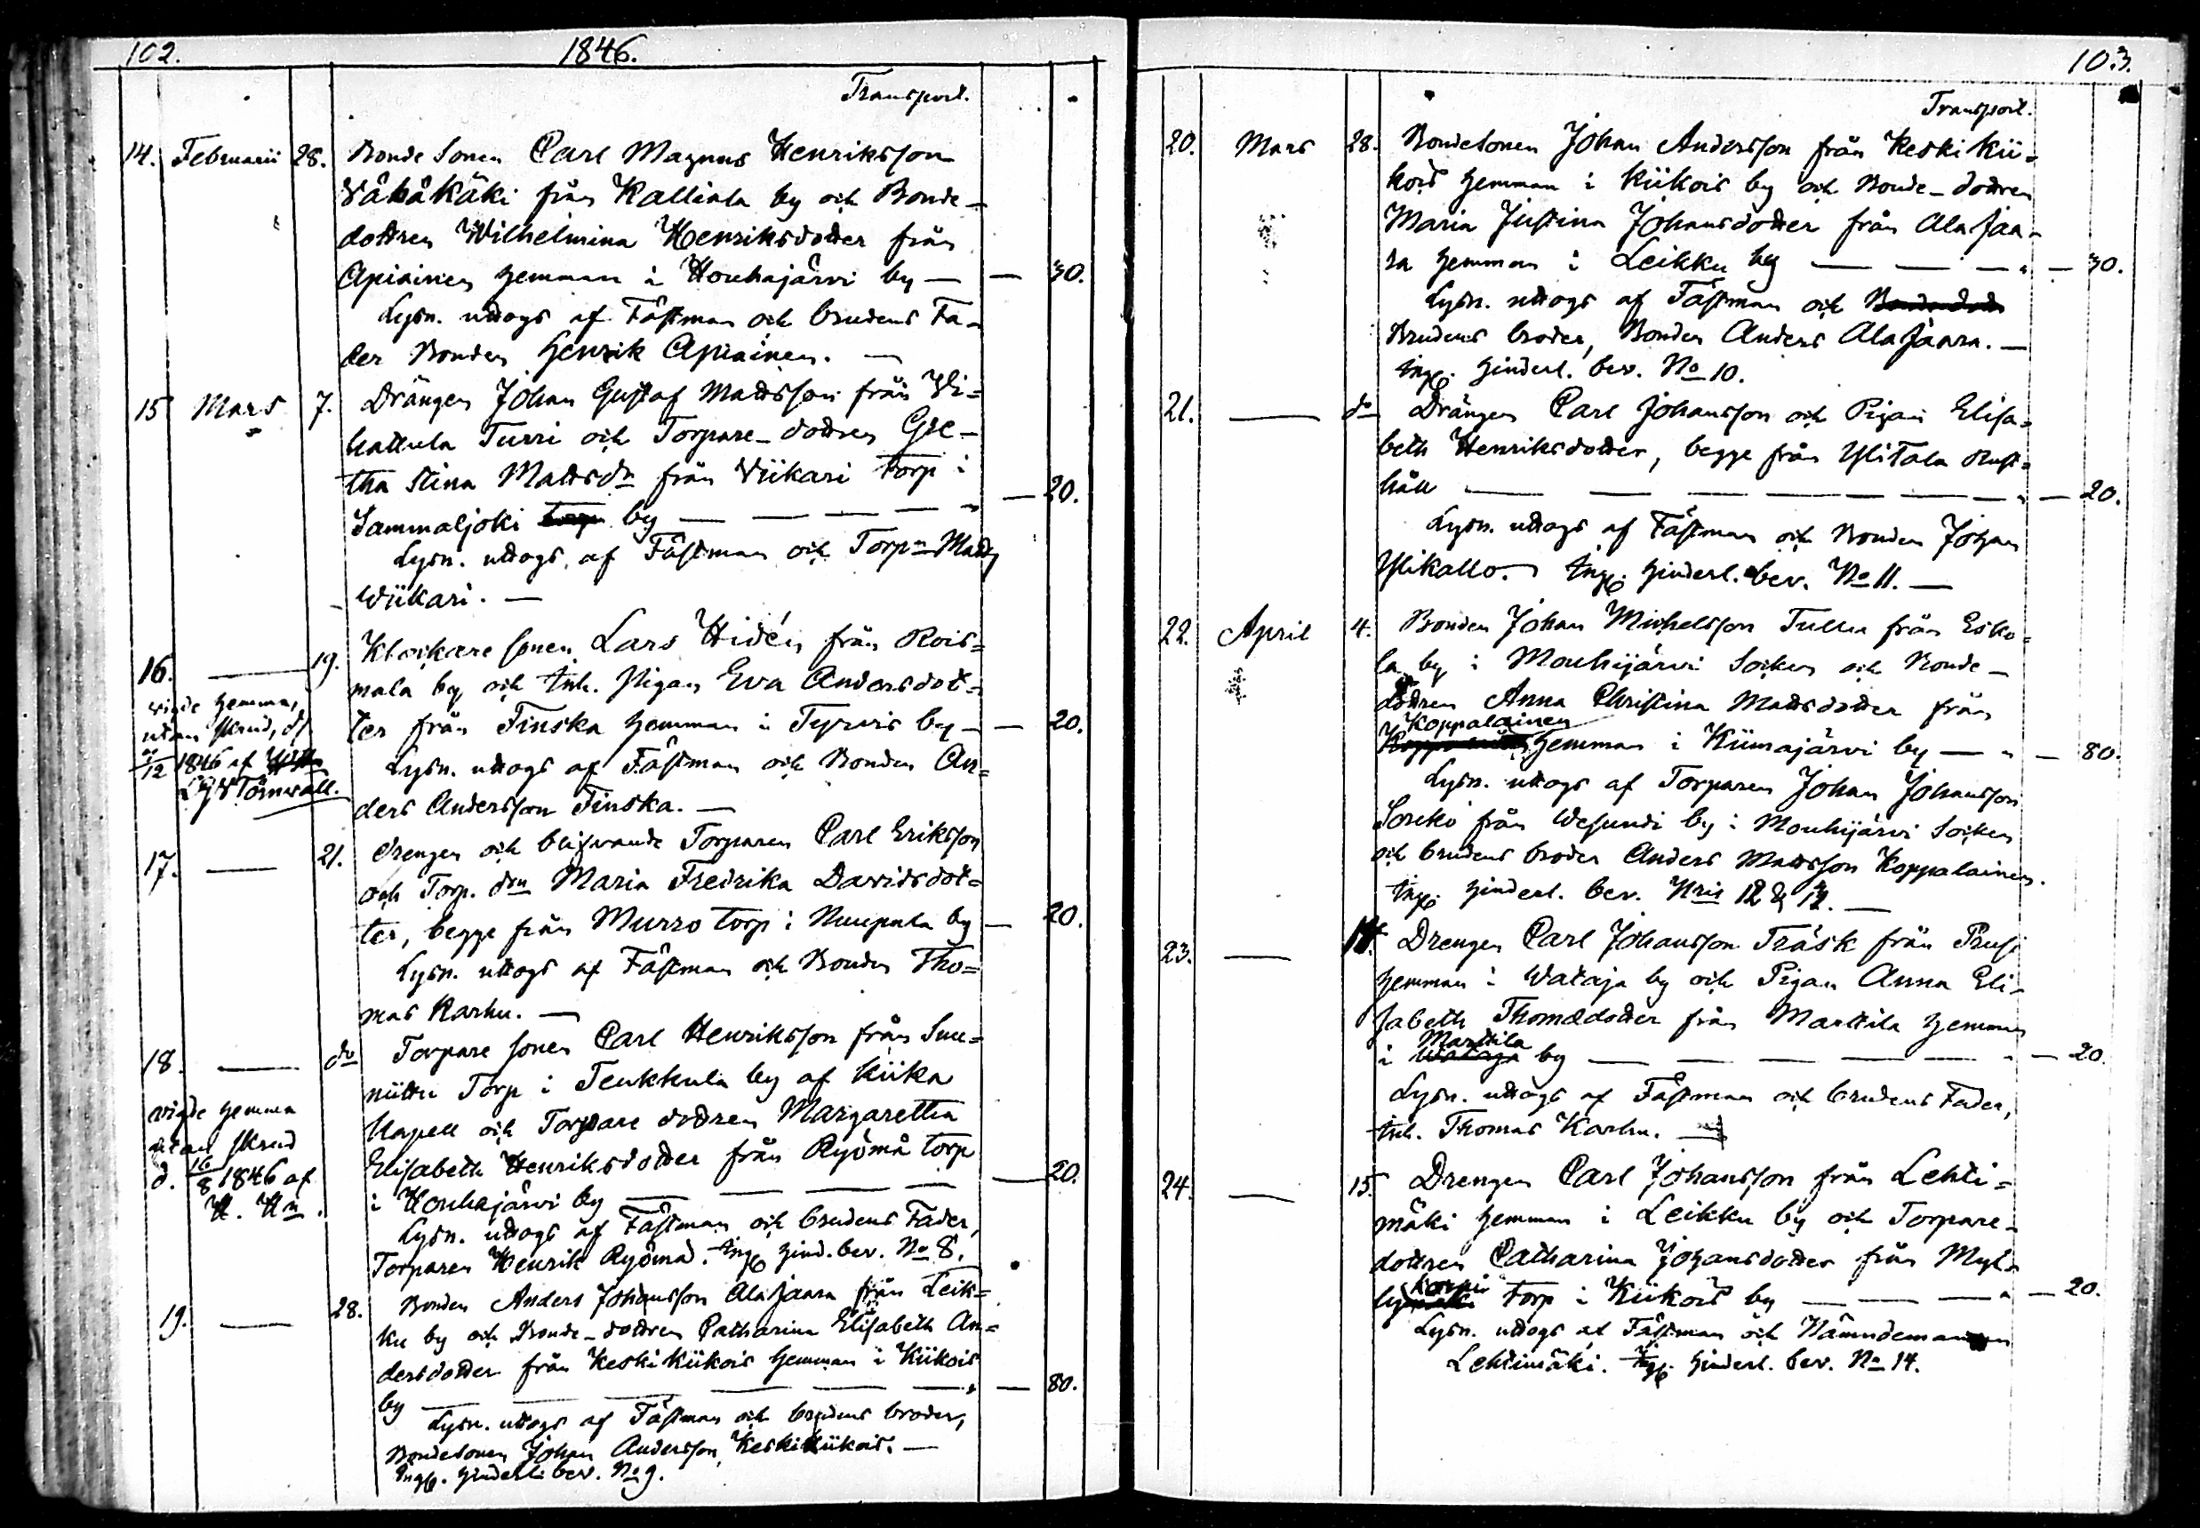 102. 1846.
Transport.
14. Februarii 28. Bonde Sonen Carl Magnus Henriksson
Vähäkäki från Kalliala by och Bonde-
dottren Wilhelmina Henriksdotter från
Apiainen hemman i Houhajärvi by — — 30.
Lysn. uttogs af Fästman och brudens Fa-
der Bonden Henrik Apiainen. —
15 Mars 7. Drängen Johan Gustaf Mattsson från Vi=
hattula Turri och Torpare-dottren Gre-
tha Stina Mattsdr från Viikari Torp i
Sammaljoki by — — — — — 20.
Lysn. uttogs af Fästman och Torpn Matts
Wiikari. —
16. — 19. Klockare sonen Lars Hidén från Rois=
mala by och Inh. Pigan Eva Andersdot=
ter från Finska hemman i Tyrvis by — — 20.
Lysn. uttogs af Fästman och Bonden An=
ders Andersson Finska. —
vigde hemma,
utan skrud, d/
12 1846 af
Törnwall.
17. — 21. Drengen och blifvande Torparen Carl Eriksson
och Torp. drn Maria Fredrika Davidsdot=
ter, begge från Murro torp i Nuupala by — 20.
Lysn. uttogs af Fästman och Bonden Tho=
mas Karhu. —
18. — do Torpare sonen Carl Henriksson från Suu=
niittu Torp i Teukkula by af Kiika
Kapell och Torpare dottren Margaretha
Elisabeth Henriksdotter från Ryömä torp
i Houhajärvi by — — — — — 20.
Lysn. uttogs af Fästman och brudens Fader,
Torparen Henrik Ryömä. Ing. hind. bev. No 8.
vigde hemma
utan skrud
d. 16/8 1846 af
H. Hn.
19. — 28. Bonden Anders Johansson Alajaara från Leik=
ku by och Bonde-dottren Catharina Elisabeth An=
dersdotter från Keski Kiikois hemman i Kiikois
by — — — — — — 80.
Lysn. uttogs af Fästman och brudens broder,
Bondesonen Johan Andersson Keski Kiikois. —
Ing. hinderl. bev. No 9.
103.
Transport.
20. Mars 28. Bondesonen Johan Andersson från Keski Kii=
kois hemman i Kiikois by och Bonde-dottren
Maria Justina Johansdotter från Alajaa-
ra hemman i Leikku by — — — — 30.
Lysn. uttogs af Fästman och
Brudens broder, Bonden Anders Alajaara. —
Ing. hinderl. bev. No 10.
21. — do Drängen Carl Johansson och Pigan Elisa=
beth Henriksdotter, begge från Ylitalo Rust=
håll — — — — — — 20.
Lysn. uttogs af Fästman och Bonden Johan
Ylikallo. Ing. hinderl. bev. No 11. —
22. April 4. Bonden Johan Michelsson Tulku från Esko=
la by i Mouhijärvi Socken och Bonde-
dottren Anna Christina Mattsdotter från
Koppalainen hemman i Kiimajärvi by — — 80.
Lysn. uttogs af Torparen Johan Johansson
Soukko från Wesundi by i Mouhijärvi Socken
och brudens broder Anders Mattsson Koppalainen.
Ing. hinderl. bev. Nris 12 & 13. —
23. — 14. Drengen Carl Johansson Träsk från Prusi
hemman i Wataja by och Pigan Anna Eli-
sabeth Thomædotter från Marttila hemman
i Marttila by — — — — — — 20.
Lysn. uttogs af Fästman och brudens Fader,
Inh. Thomas Karhu. —
24. — 15. Drengen Carl Johansson från Lehti=
mäki hemman i Leikku by och Torpare-
dottren Catharina Johansdotter från Myl-
lykorpi torp i Kiikois by — — — 20.
Lysn. uttogs af Fästman och Nämndemannen
Lehtimäki. Ing. hinderl. bev. No 14.